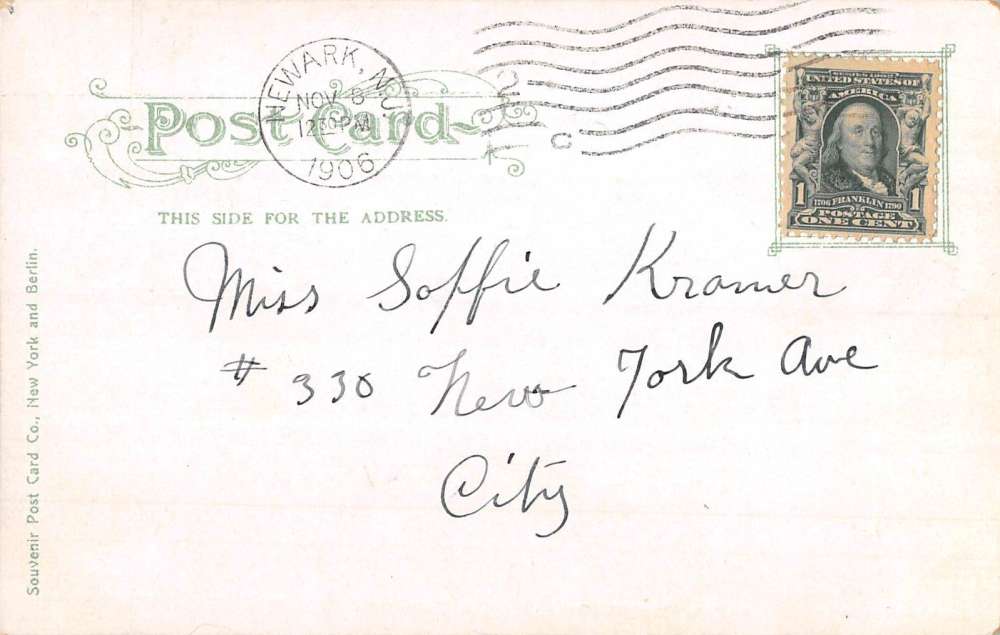 NEWARK, N.J.
NOV 8
12 30 PM
1906
Post Card
THIS SIDE FOR THE ADDRESS.
UNITED STATES OF
AMERICA
1 1706 FRANKLIN 1790 1
POSTAGE
ONE CENT
Miss Soffie Kramer
# 330 New York Ave
City
Souvenir Post Card Co., New York and Berlin.